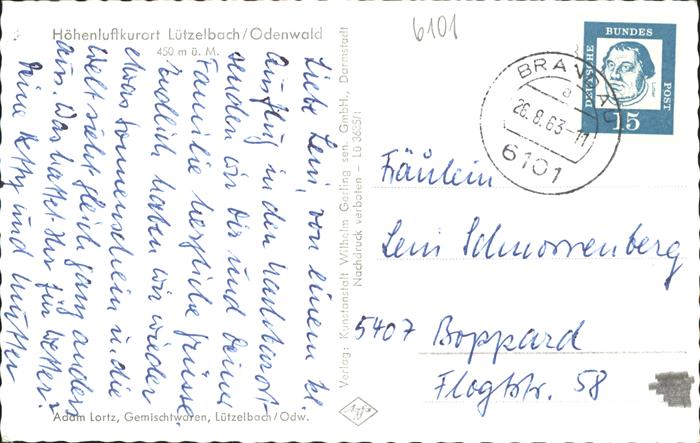 Höhenluftkurort Lützelbach/Odenwald
450 m ü. M.
Liebe Leni, von einem kl.
Ausflug in den Nachbarort
senden wir Dir und Deiner
Familie herzliche Grüsse.
Endlich haben wir wieder
etwas Sonnenschein u. die
Welt sieht gleich ganz anders
aus. Was hattet Ihr für Wetter?
Deine Ketty und Mutter
Adam Lortz, Gemischtwaren, Lützelbach/Odw.
Verlag: Kunstanstalt Wilhelm Gerling sen. GmbH., Darmstadt
Nachdruck verboten — Lü 3635/1
6101
DEUTSCHE BUNDES POST
Luther
15
BRANDAU
a
26.8.63-11
6101
Fräulein
Leni Schnorrenberg
5407 Boppard
Flogtstr. 58